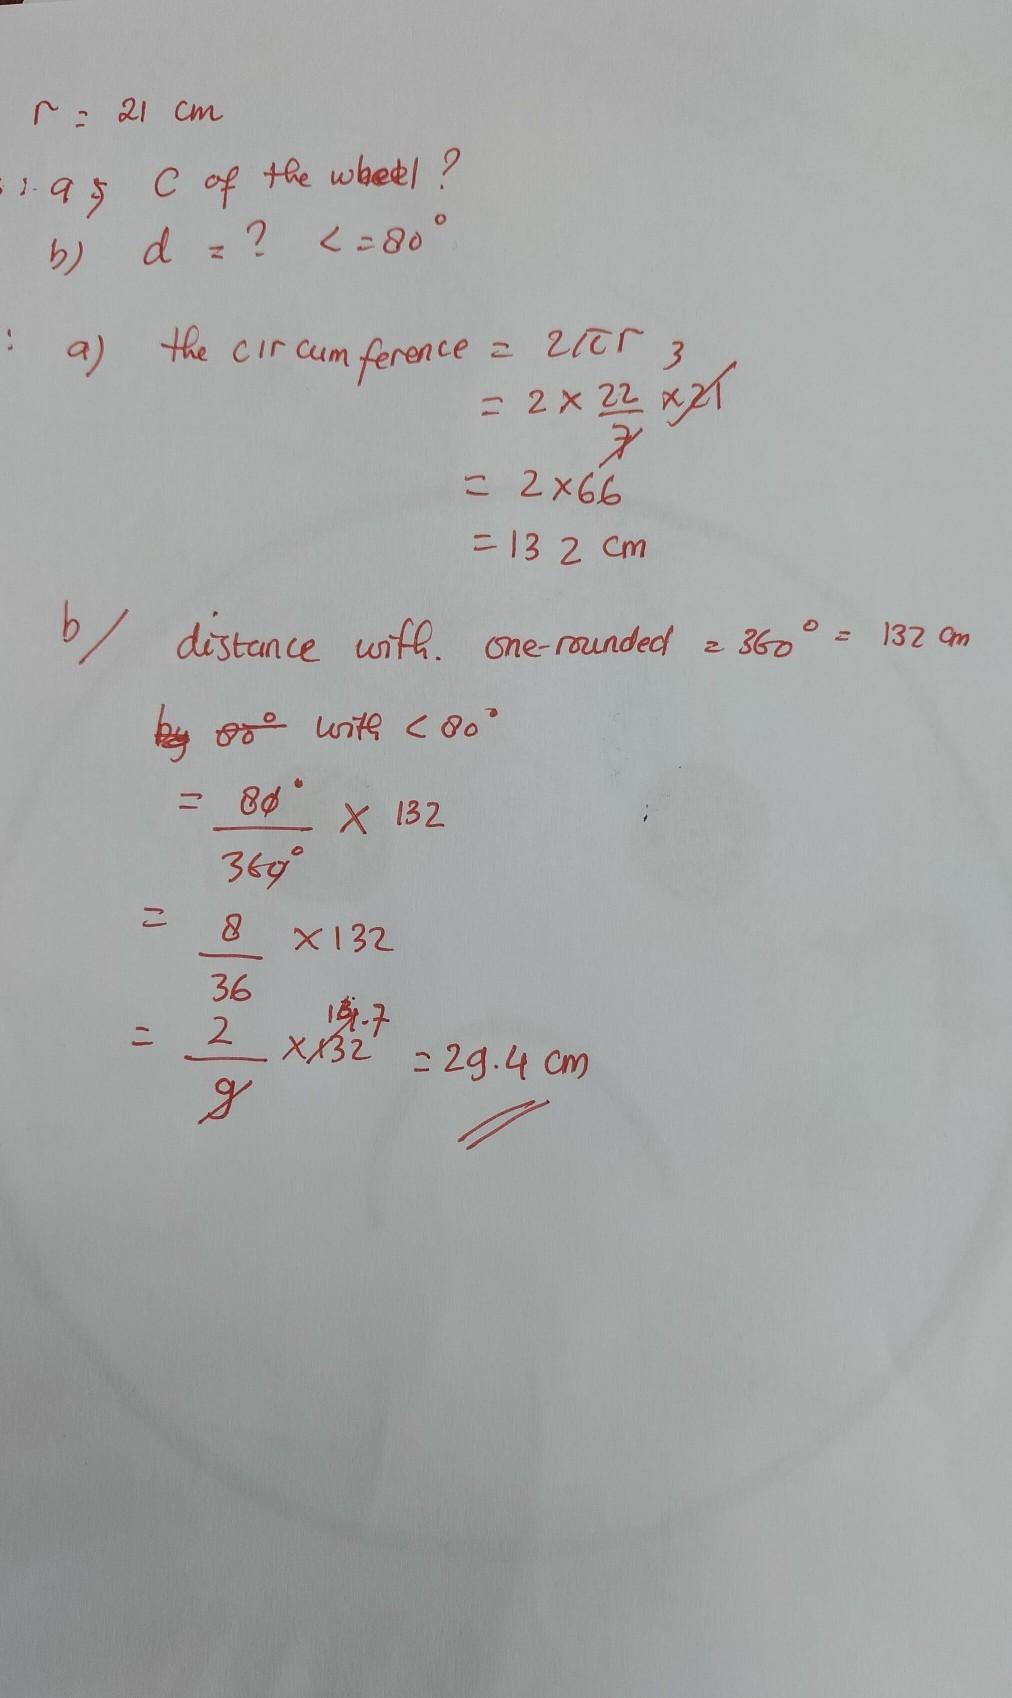 r = 21 cm
a) C of the wheel ?
b) d = ? < = 80°
: a) the circumference = 2πr
= 2 × 22/7 × 21 3
= 2 × 66
= 132 cm
b/ distance with. one-rounded = 360° = 132 cm
by 80° with < 80°
= 80°/360° × 132
= 8/36 × 132
= 2/9 × 132 14.7 = 29.4 cm